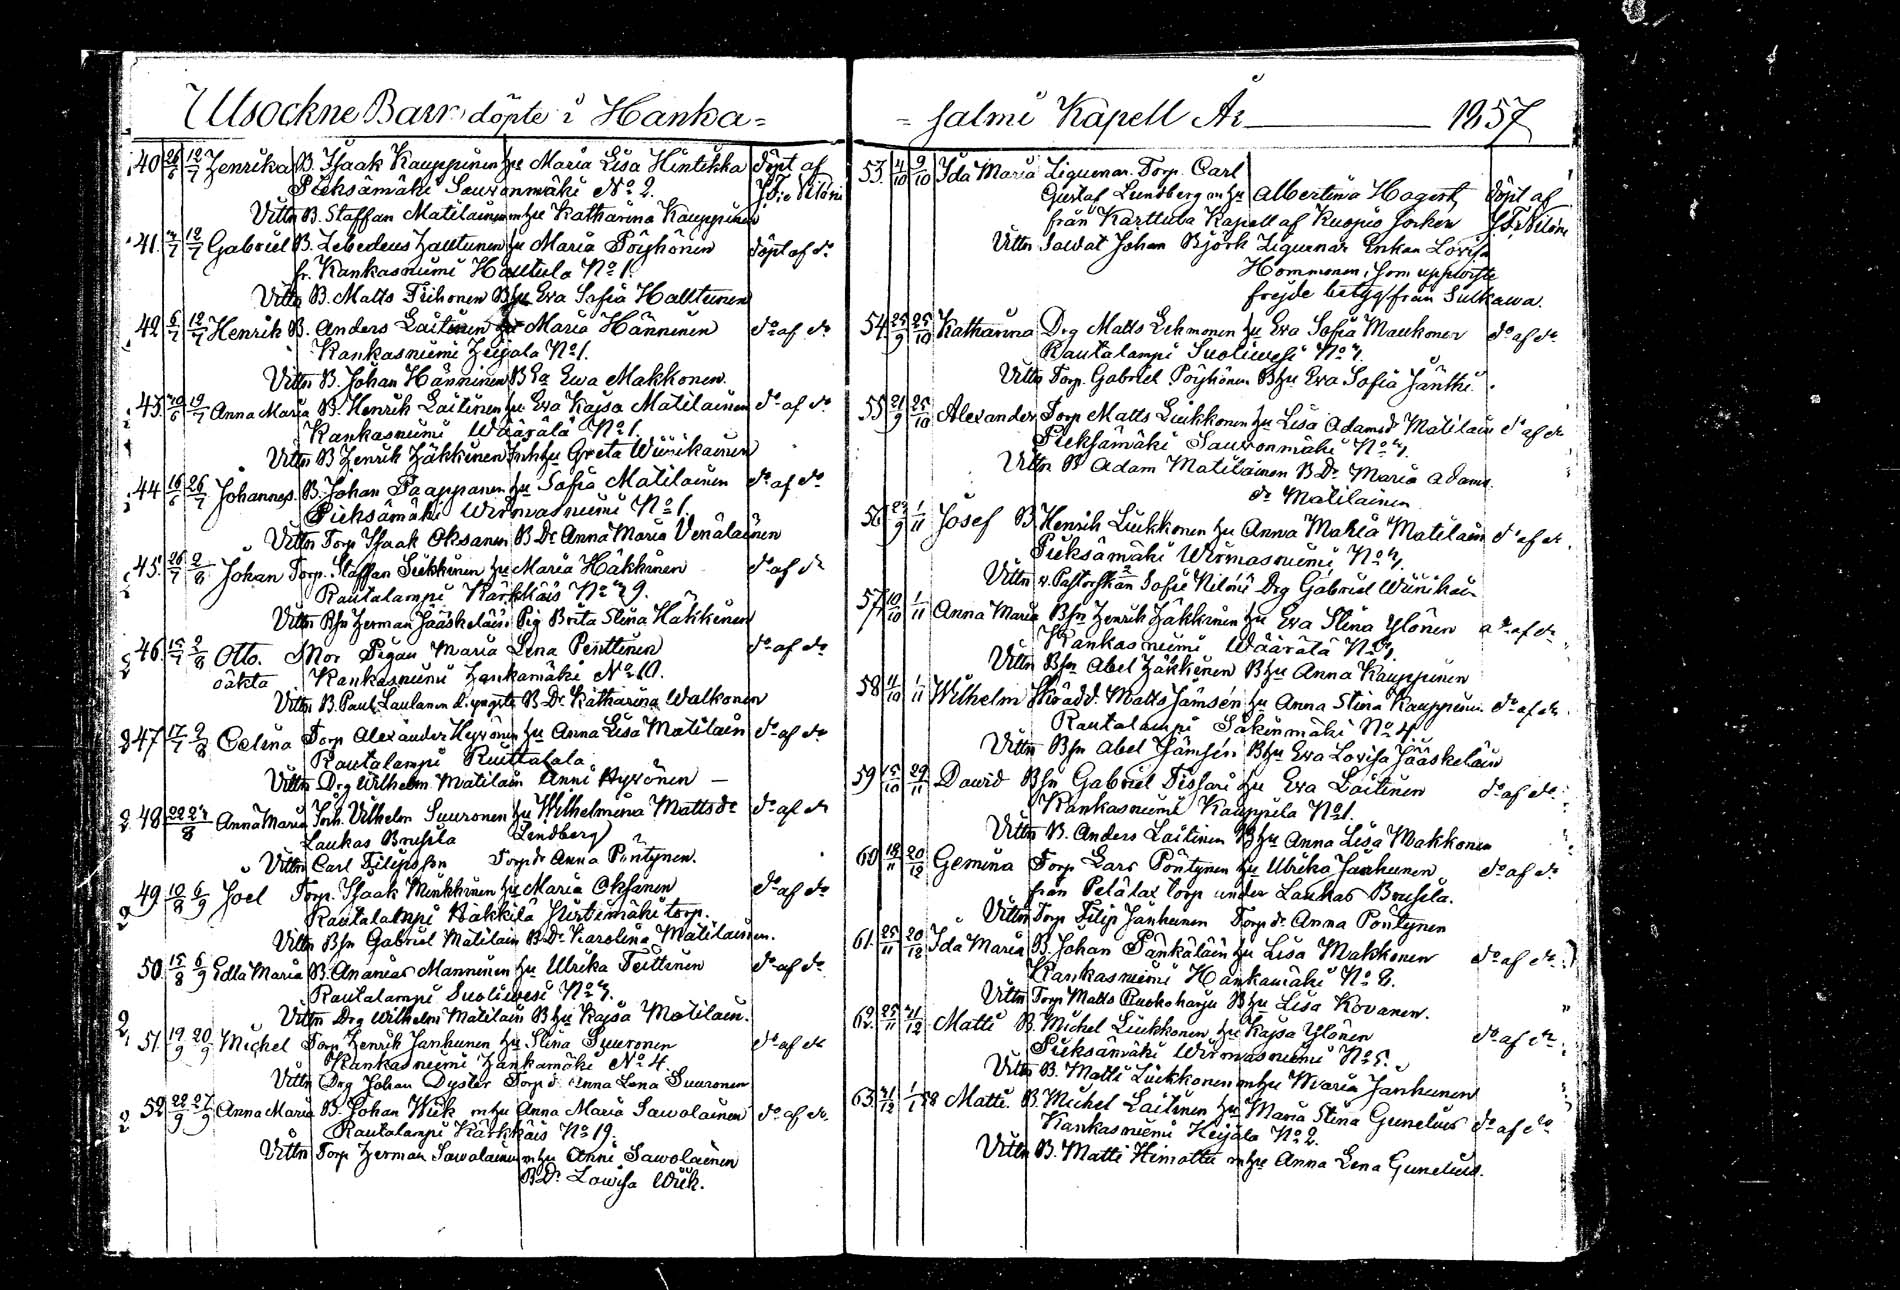 Utsockne Barn döpte i Hanka=
40. 26/6 12/7 Henrika B. Isaak Kauppinen hu Maria Lisa Hintikka döpt af
Pieksämäki Sauvonmäki No 2.
Vittn B. Staffan Matilainen m hu Katharina Kauppinen
41. 12/7 Gabriel B. Zebedeus Hautunen hu Maria Pöyhönen döpt af do
fr. Kankasniemi Hautula No 1.
Vittn B. Matts Tiihonen B hu Eva Sofia Halttunen
42 6/7 12/7 Henrik B. Anders Laitinen hu Maria Hänninen do af do
Kankasniemi Heijala No 1.
Vittn B. Johan Hänninen B Ea Ewa Makkonen.
43. 19/7 Anna Maria B. Henrik Laitinen hu Eva Kajsa Matilainen do af do
Kankasniemi Wäärälä No 1.
Vittn B Henrik Häkkinen Inh hu Greta Wiinikainen
44 16/6 26/7 Johannes. B. Johan Paappanen hu Sofia Matilainen do af do
Pieksämäki Wirmasniemi No 1.
Vittn Torp Isaak Oksanen B Dr Anna Maria Venäläinen
45. 26/7 2/8 Johan Torp. Staffan Siekkinen hu Maria Häkkinen do af do
Rautalampi Kärkkäis No 29.
Vittn Bsn Herman Jääskeläin Pig Brita Stina Häkkinen
46. 15/7 2/8 Otto. Mor Pigan Maria Lena Penttinen do af do
oäkta Kankasniemi Hankamäki No 10.
Vittn B. Paul Laulanen B Dr Katharina Walkonen
47. 17/7 9/8 Celina Torp Alexander Hyvönen hu Anna Lisa Matilain do af do
Rautalampi Ruuttahala
Vittn Drg Wilhelm Matilain Anni Hyvönen —
48. 22 23/8 Anna Maria Inh. Vilhelm Suuronen hu Wilhelmina Matts dr do af do
Laukas Brusila Lindberg
Vittn Carl Filipsson Torp dr Anna Pöntynen.
49 10/8 6/9 Joel Torp. Isaak Minkkinen hu Maria Oksanen do af do
Rautalampi Häkkilä torp.
Vittn Bsn Gabriel Matilain B Dr Karolina Matilainen.
50. 15/8 6/9 Edla Maria B. Ananias Manninen hu Ulrika Teittinen do af do
Rautalampi Suoliwesi No 3.
Vittn Drg Wilhelm Matilain B hu Kajsa Matilain.
51. 19/9 20/9 Michel Torp Henrik Janhunen hu Stina Suuronen do af do
Kankasniemi Hankamäki No 4.
Vittn Drg Johan Dyster Torp d. Anna Lena Suuronen
52 22/9 27/9 Anna Maria B. Johan Wiik m hu Anna Maria Sawolainen do af do.
Rautalampi Kärkkäis No 19.
Vittn Torp Herman Sawolainen m hu Anni Sawolainen
B Dr Lowisa Wiik.
= salmi Kapell År 1857
53. 4/10 9/10 Ida Maria Ziguenar. Torp. Carl
Gustaf Lundberg m hu Albertina Hagert döpt af
från Karttula Kapell af Kuopio Socken
Vittn Soldat Johan Björk Ziguenar Enkan Lovisa
Hommonen, som uppwiste
frejde betyg från Sulkawa.
54. 25/9 25/10 Katharina Drg Matts Lehmonen hu Eva Sofia Maukonen do af do
Rautalampi Suoliwesi No 3.
Vittn Torp. Gabriel Pöyhönen B hu Eva Sofia Jäntti.
55 21/9 25/10 Alexander Torp Matts Liukkonen hu Lisa Adams dr Matilain do af do
Pieksämäki Sauvonmäki No 3.
Vittn B Adam Matilainen B Dr Maria Adams
dr Matilainen
56. 1/11 Josef B Henrik Liukkonen hu Anna Maria Matilain do af do.
Pieksämäki Wirmasniemi No 3.
Vittn v. Pastorskan Sofie Drg Gabriel Wiinikai
57. 10/10 1/11 Anna Maria Bsn Henrik Häkkinen hu Eva Stina Ylönen do af do
Kankasniemi Wäärälä No 3.
Vittn Bsn Abel Häkkinen B hu Anna Kauppinen
58 11/10 1/11 Wilhelm Skrädd. Matts Jämsén hu Anna Stina Kauppinen do af do.
Rautalampi Säkinmäki No 4
Vittn Bsn Abel Jämsén B hu Eva Lovisa Jääskeläin
59 15/10 29/11 Dawid Bsn Gabriel Tissari hu Eva Laitinen do af do.
Kankasniemi Kauppila No 1.
Vittn B. Anders Laitinen B hu Anna Lisa Makkonen
60 18/11 20/12 Gemina Torp Lars Pöntynen hu Ulrika Janhunen do af do
från torp under Laukas Brusila.
Vittn Torp Filip Janhunen Torp dr Anna Pöntynen
61. 25/11 20/12 Ida Maria B. Johan Pänkäläin hu Lisa Makkonen do af do.
Kankasniemi Hankamäki No 8.
Vittn Torp Matts Ruokoharju B hu Lisa Kovanen.
62. 25/11 31/12 Matti B. Michel Liukkonen hu Kajsa Ylönen do af do
Pieksämäki Wirmasniemi No 5.
Vittn B. Matti Liukkonen m hu Maria Janhunen
63. 31/12 1/1 58 Matti. B. Michel Laitinen hu Maria Stina Gunelius do af do
Kankasniemi Heijala No 2.
Vittn B. Matti Himottu m hu Anna Lena Gunelius.